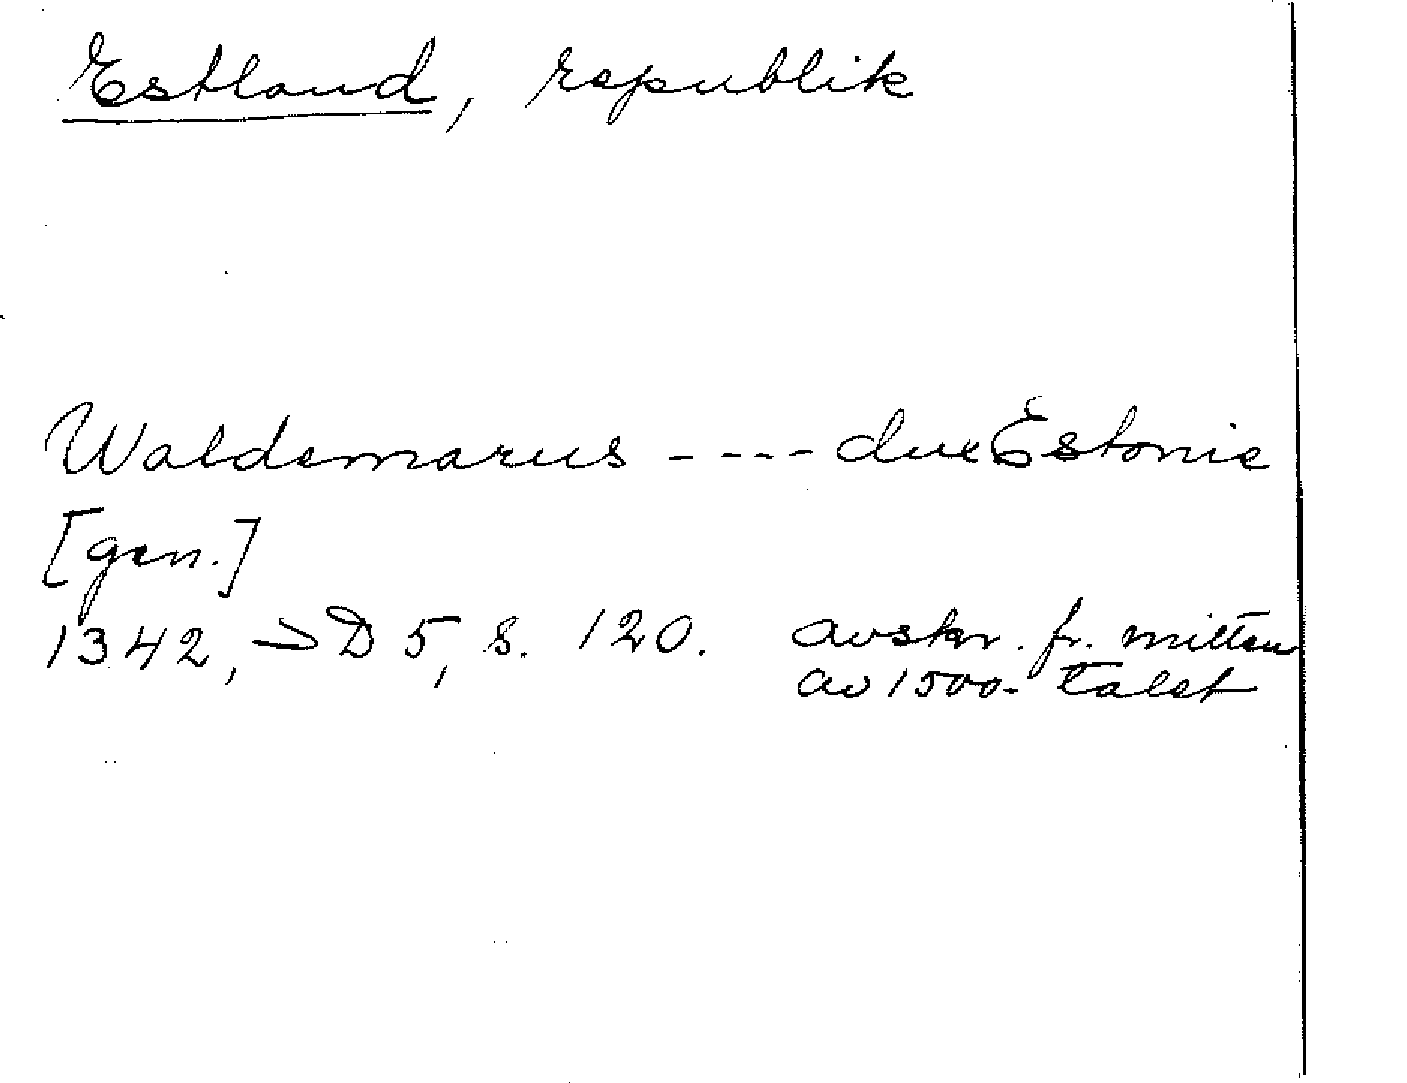 Estland, republik
Waldemarus ---- dux Estonie
[gen.]
1342, SD 5, s. 120. avskr. fr. mitten
av 1500-talet